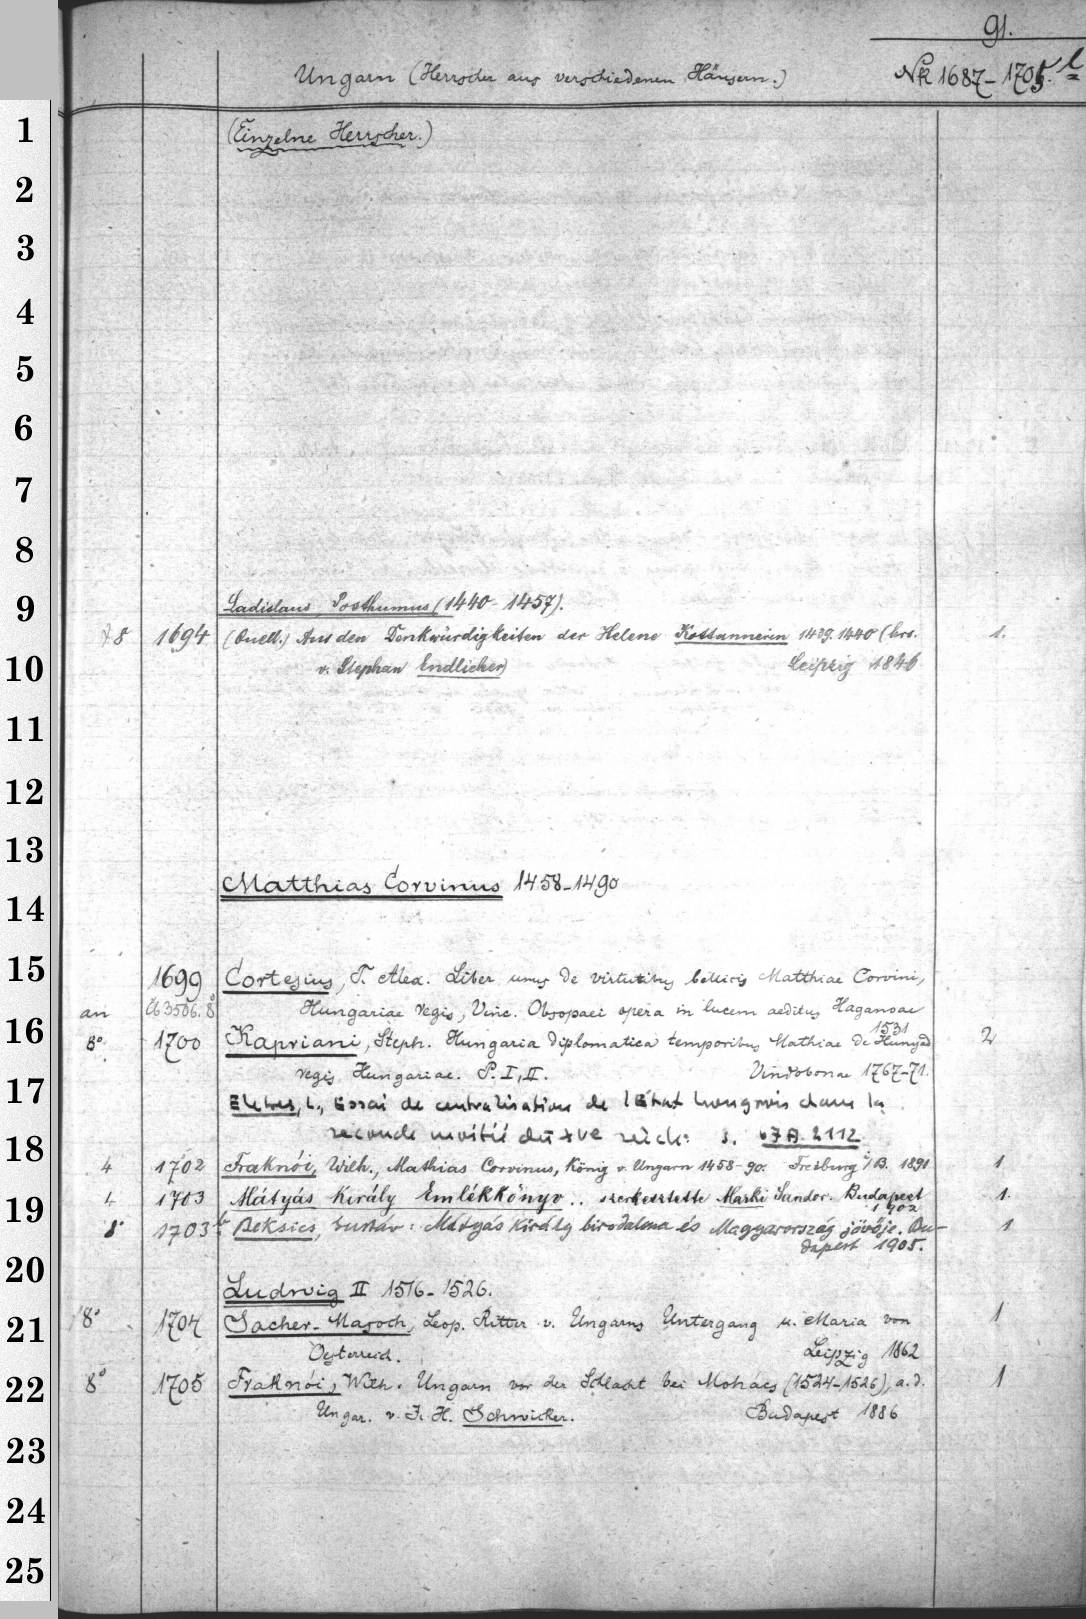 91.
Ungarn (Herrscher aus verschiedenen Häusern.) Nk 1687-1705.
1 (Einzelne Herrscher.)
2
3
4
5
6
7
8
9 Ladislaus Posthumus (1440-1457).
8 1694 (Quell.) Aus den Denkwürdigkeiten der Helene Kottannerin 1439.1440 (hrs. 1.
10 v. Stephan Endlicher) Leipzig 1846
11
12
13
14 Matthias Corvinus 1458-1490
15 1699 Cortesius, T. Alex. Liber unus de virtutibus bellicis Matthiae Corvini,
an 3506. 8° Hungariae regis, Vinc. Obsopaei opera in lucem aeditus Haganoae
1531
16 8° 1700 Kapriani, Steph. Hungaria diplomatica temporibus Mathiae de Hunyad 2
regis Hungariae. P. I, II. Vindobonae 1767-71.
17 L., Essai de centralisation de l'État hongrois dans la
seconde moitié du XVe siècle s. A. 2112
18 4 1702 Fraknói, Wilh., Mathias Corvinus, König v. Ungarn 1458-90. Freiburg i/B. 1891 1
19 4 1703 Mátyás Király Emlékkönyv .. szerkesztette Marki Sandor. Budapest 1.
1902
8° 1703 Beksics, Gusztáv: Mátyás király birodalma és Magyarország jövője. Bu- 1
dapest 1905.
20 Ludwig II 1516-1526.
21 8° 1704 Sacher-Masoch, Leop. Ritter v. Ungarns Untergang u. Maria von 1
Oesterreich. Leipzig 1862
22 8° 1705 Fraknói, Wilh. Ungarn vor der Schlacht bei Mohács (1524-1526), a. d. 1
Ungar. v. J. H. Schwicker. Budapest 1886
23
24
25